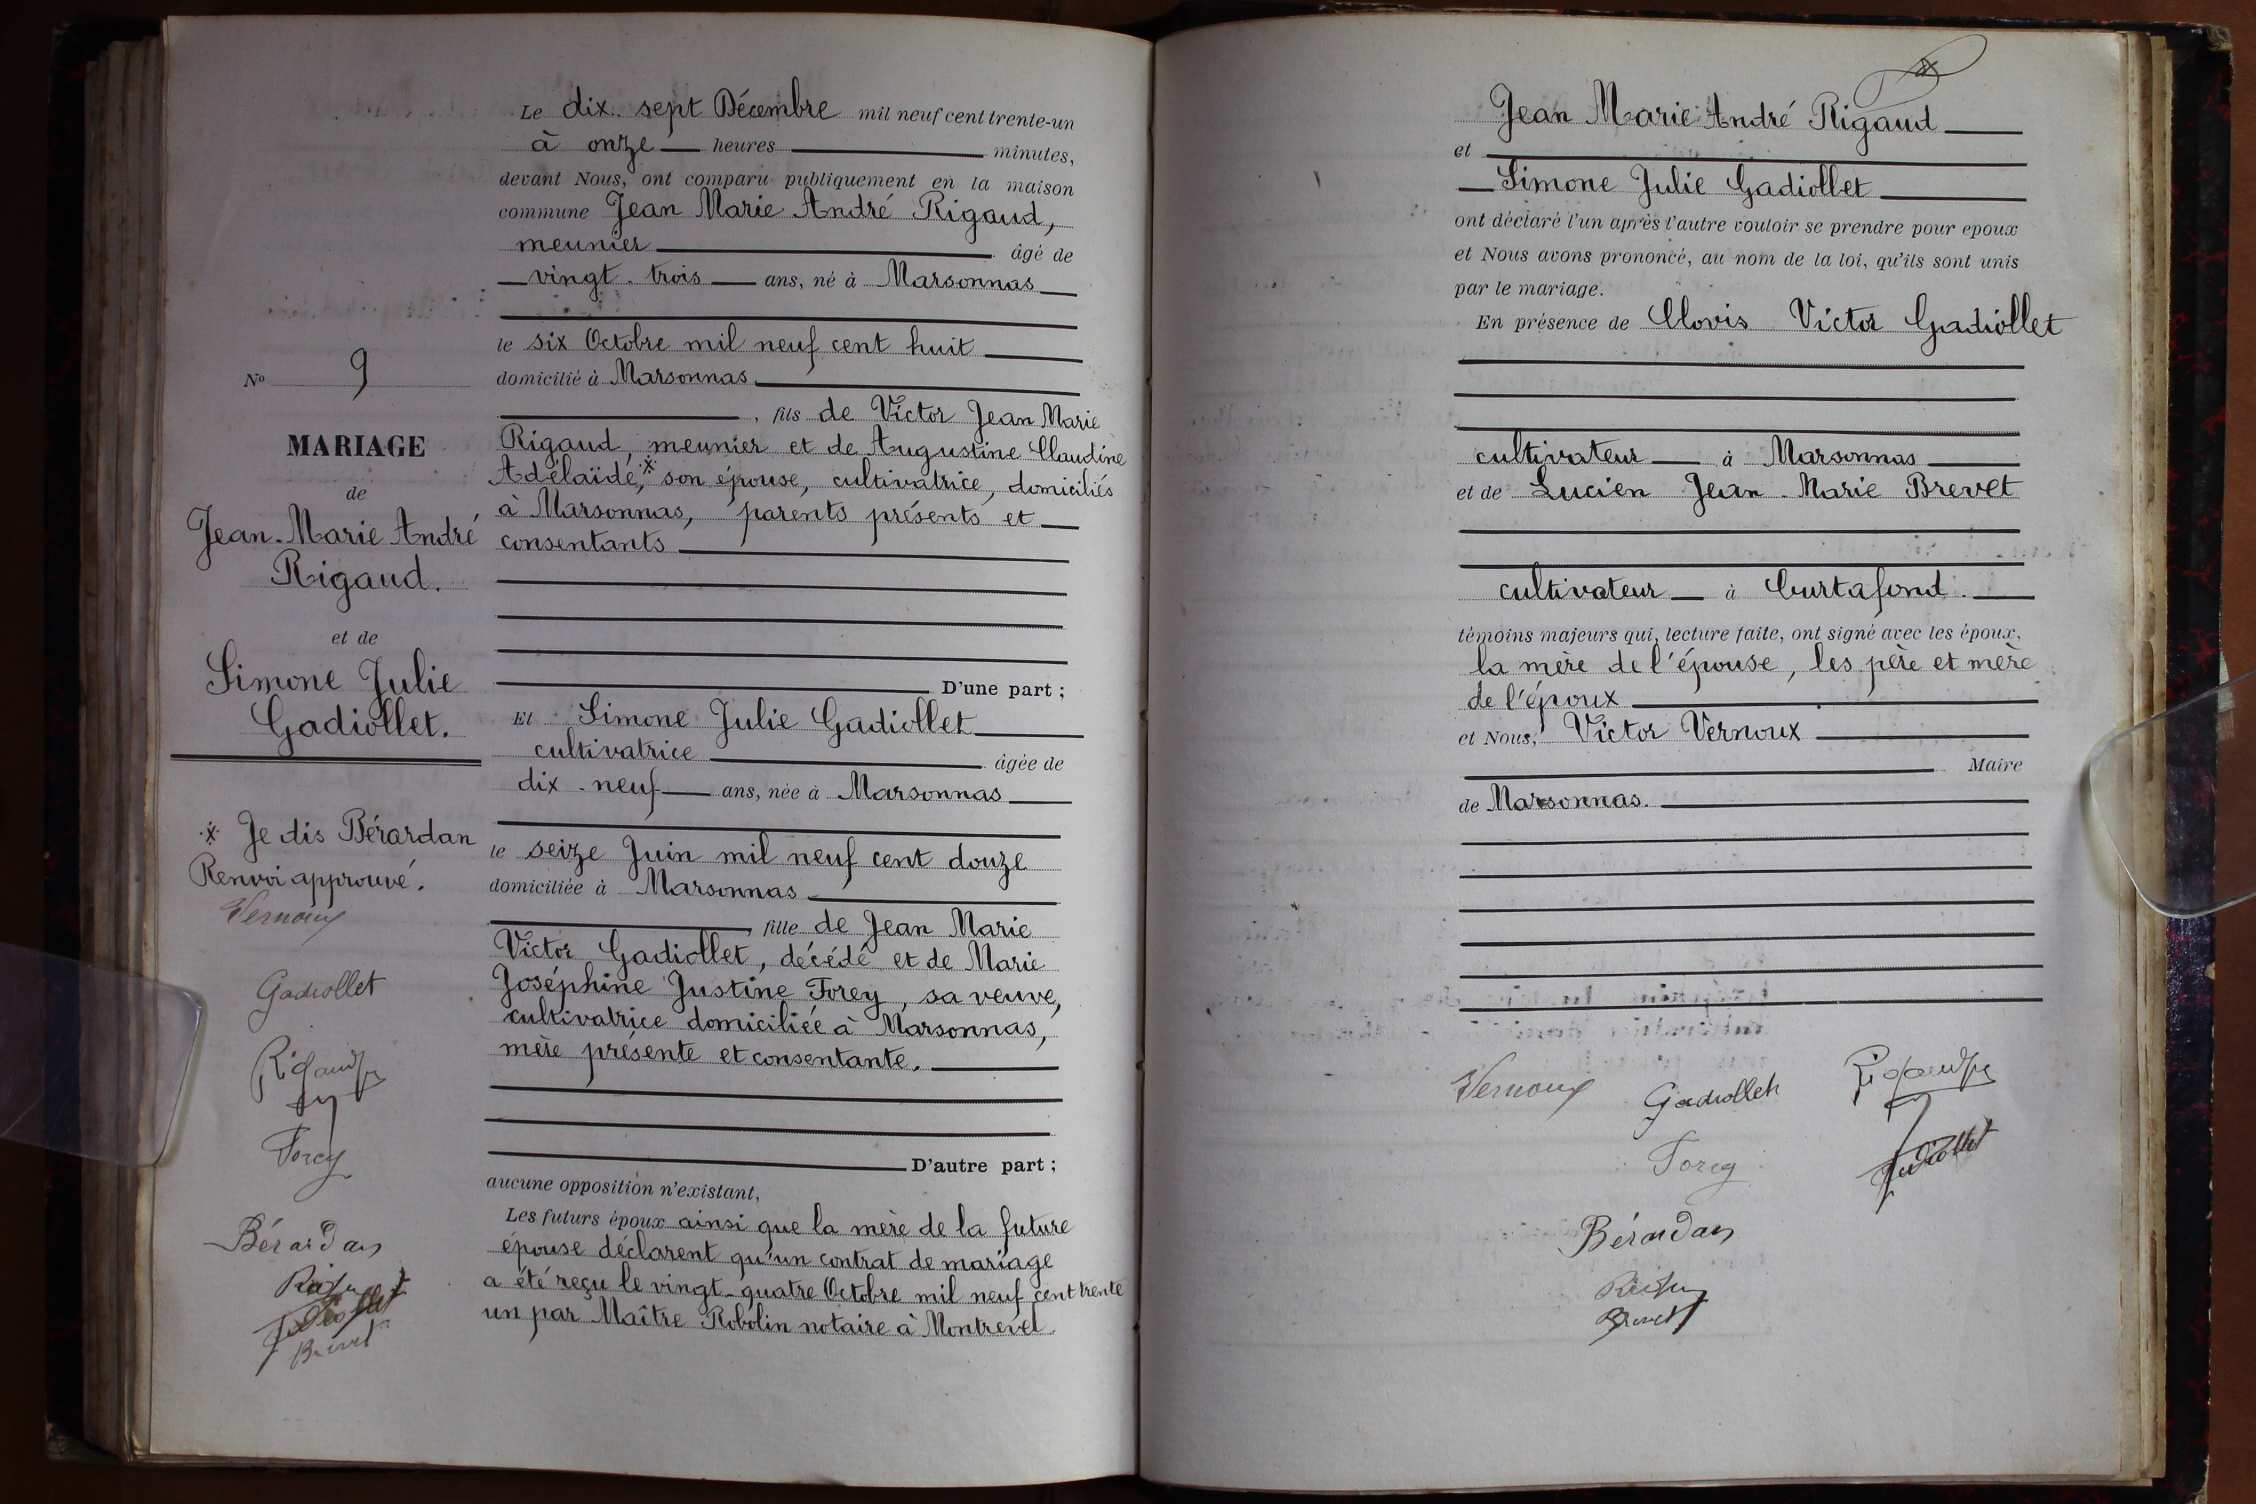 Le dix sept Décembre mil neuf cent trente-un
à onze heures minutes,
devant Nous, ont comparu publiquement en la maison
commune Jean Marie André Rigaud,
meunier âgé de
vingt-trois ans, né à Marsonnas
le six Octobre mil neuf cent huit
domicilié à Marsonnas
, fils de Victor Jean Marie
Rigaud, meunier et de Augustine Claudine
Adélaïde, * son épouse, cultivatrice, domiciliés
à Marsonnas, parents présents et
consentants
D'une part ;
Et Simone Julie Gadiollet
cultivatrice âgée de
dix-neuf ans, née à Marsonnas
le seize Juin mil neuf cent douze
domiciliée à Marsonnas
, fille de Jean Marie
Victor Gadiollet, décédé et de Marie
Joséphine Justine Forey, sa veuve,
cultivatrice domiciliée à Marsonnas,
mère présente et consentante.
D'autre part ;
aucune opposition n'existant,
Les futurs époux ainsi que la mère de la future
épouse déclarent qu'un contrat de mariage
a été reçu le vingt-quatre Octobre mil neuf cent trente
un par Maître Robolin notaire à Montrevel
No 9
MARIAGE
de
Jean-Marie André
Rigaud.
et de
Simone Julie
Gadiollet.
* Je dis Bérardan
Renvoi approuvé.
Vernoux
Gadiollet
Rigaud
Forey
Bérardan
Gadiollet
Brevet
Jean Marie André Rigaud
et
Simone Julie Gadiollet
ont déclaré l'un après l'autre vouloir se prendre pour epoux
et Nous avons prononcé, au nom de la loi, qu'ils sont unis
par le mariage.
En présence de Clovis Victor Gadiollet
cultivateur à Marsonnas
et de Lucien Jean-Marie Brevet
cultivateur à Curtafond.
témoins majeurs qui, lecture faite, ont signé avec les époux,
la mère de l'épouse, les père et mère
de l'époux
et Nous, Victor Vernoux
Maire
de Marsonnas.
Vernoux Gadiollet Rigaud
Forey Gadiollet
Bérardan
Brevet